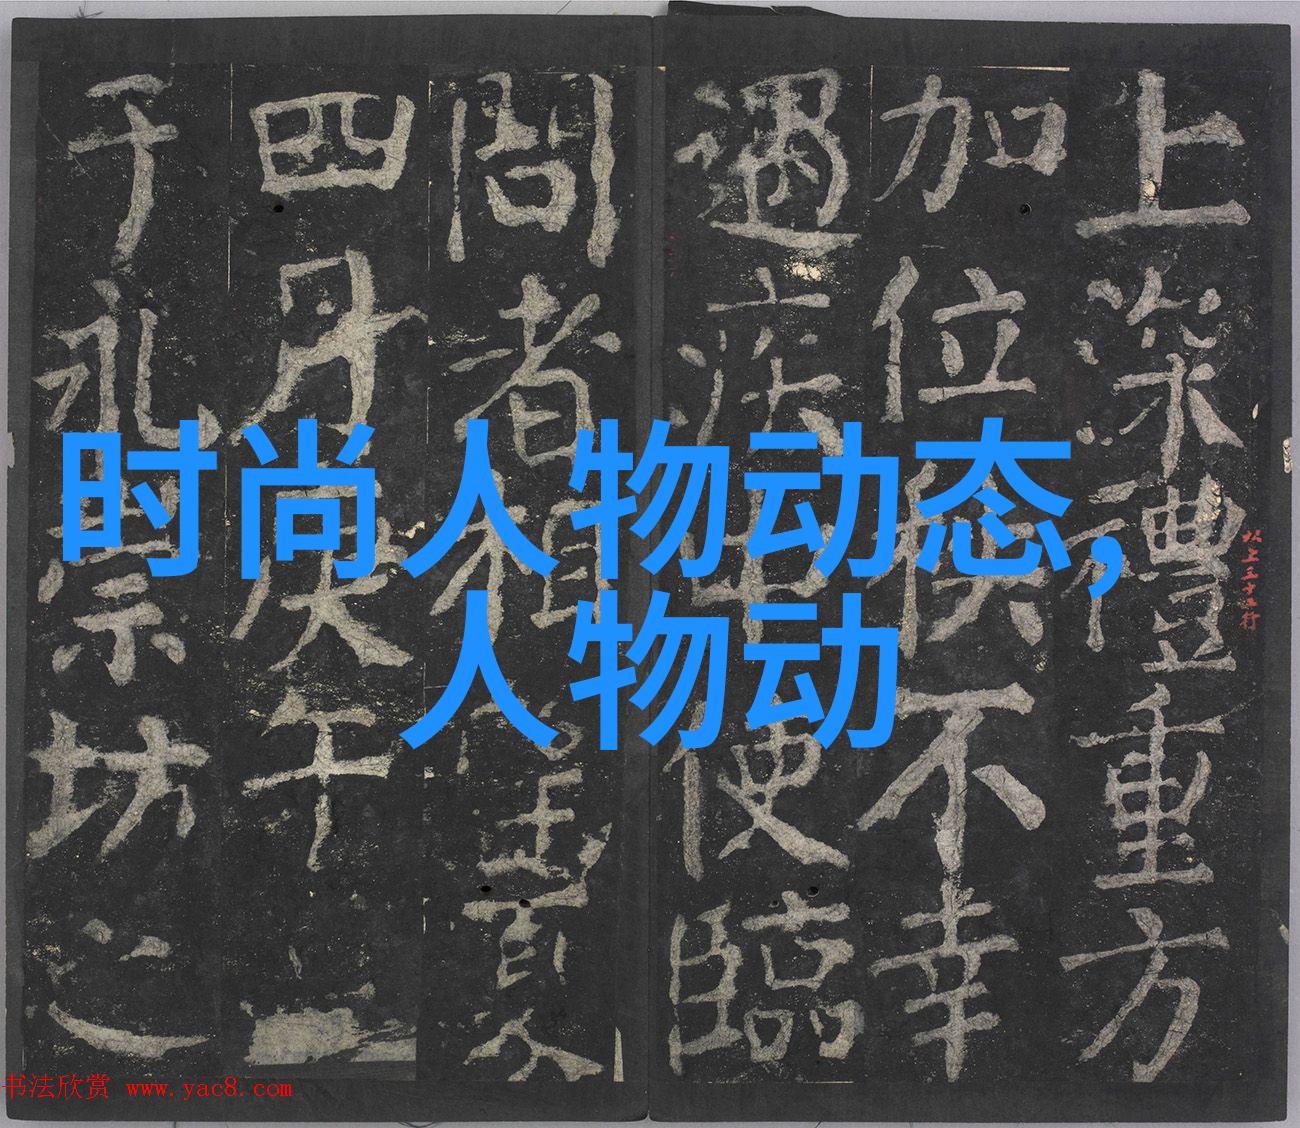 时尚人物动态,
人物动
上深禮重方
加位 不幸
遇疾 便臨
問者相望夏
四月庚午
于永崇坊之
书法欣赏 www.yac8.com